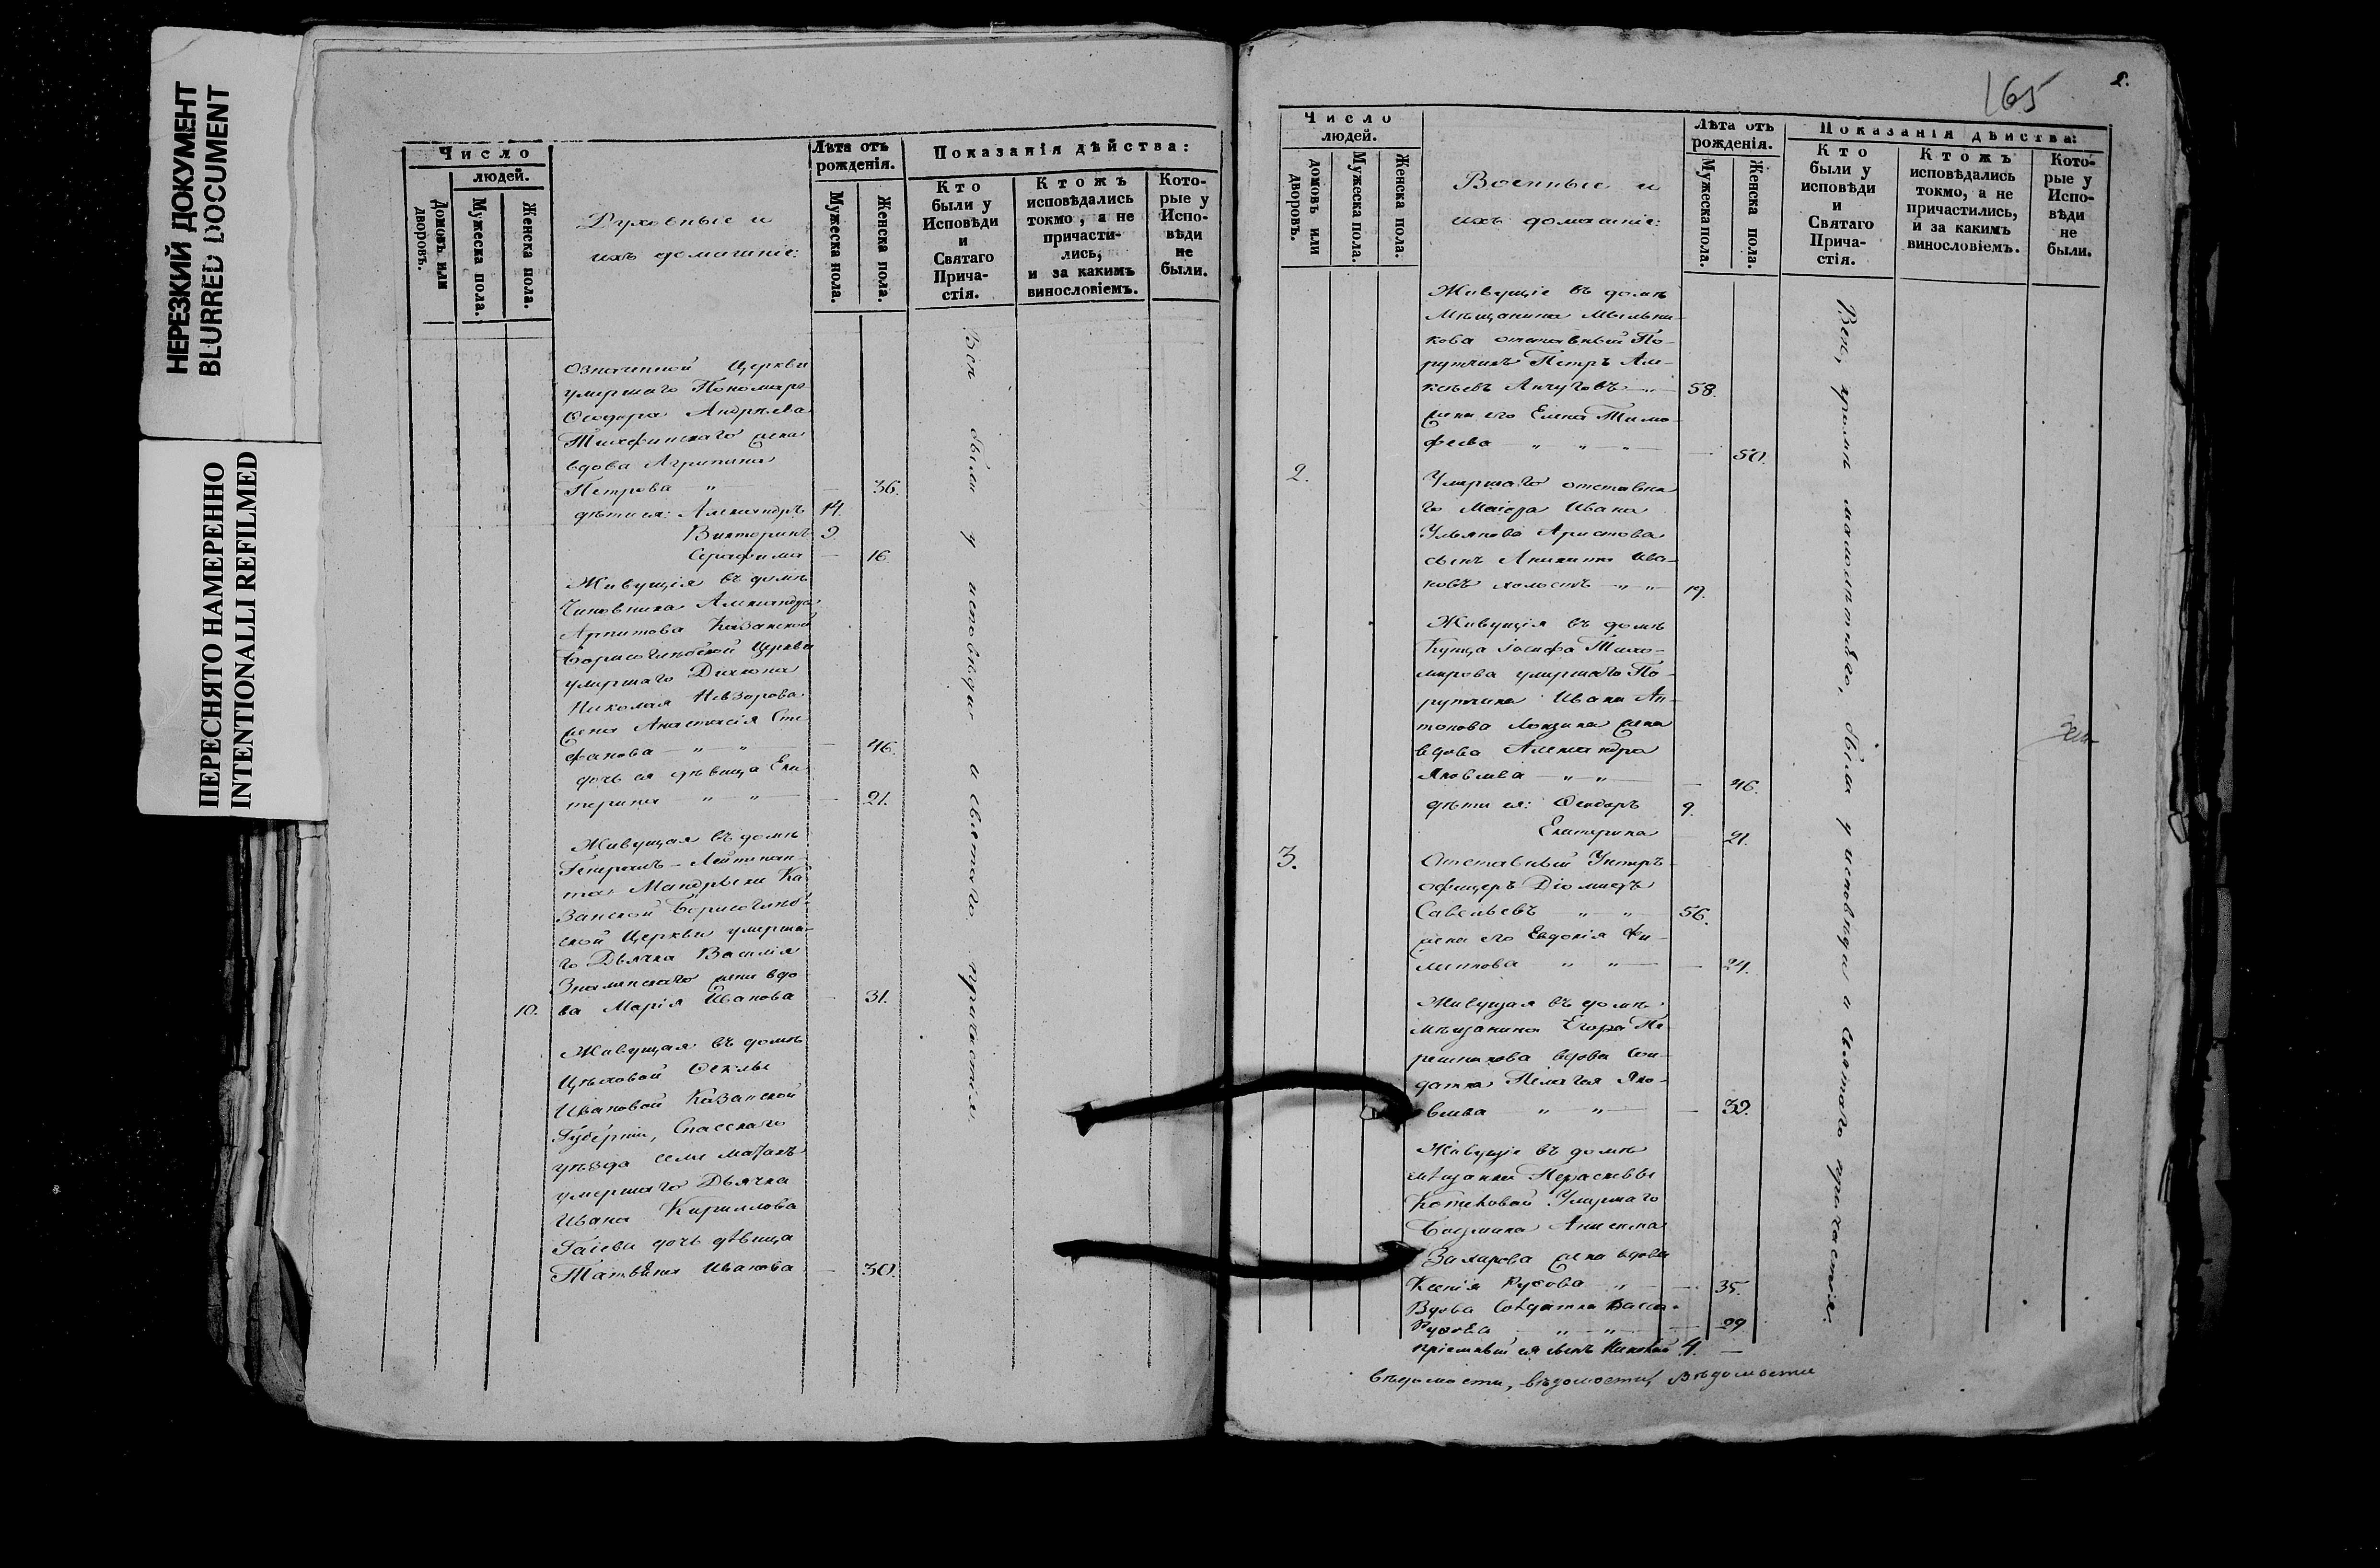 НЕРЕЗКИЙ ДОКУМЕНТ
BLURRED DOCUMENT
ПЕРЕСНЯТО НАМЕРЕННО
INTENTIONALLI REFILMED
Число
людей.
Домовъ или дворовъ.
Мужеска пола.
Женска пола.
Духовные и
ихъ домашніе:
Лѣта отъ
рожденія.
Мужеска пола.
Женска пола.
Показанія дѣйства:
Кто
были у
Исповѣди
и
Святаго
Прича-
стія.
Ктожъ
исповѣдались
токмо, а не
причасти-
лись,
и за какимъ
винословіемъ.
Кото-
рые у
Испо-
вѣди
не
были.
Означенной Церкви
умершаго Пономаря
Ѳеодора Андреева
жена
вдова Агрипина
Петрова — " — 36.
дѣти ея: Александръ 14.
Викторинъ 9.
Серафима — 16.
Живущія въ домѣ
Чиновника Александра
Казанской
Борисоглѣбской Церкви
умершаго Діакона
Николая Невзорова
жена Анастасія Сте-
фанова — " — " — 46.
дочь ея дѣвица Ека-
терина — " — " — 21.
Живущая въ домѣ
Генералъ-Лейтенан-
та Мандрыки Ка-
занской Борисоглѣб-
ской Церкви умерша-
го Дьячка Василія
Знаменскаго жена вдо-
10. ва Марія Иванова — 31.
Живущая въ домѣ
Цѣховой Ѳеклы
Ивановой Казанской
Губерніи, Спасскаго
уѣзда села
умершаго Дьячка
Ивана Кириллова
дочь дѣвица
Иванова — 30.
Всѣ были у исповѣди и святаго причастія.
165
2.
Число
людей.
домовъ или дворовъ.
Мужеска пола.
Женска пола.
Военные и
ихъ домашніе:
Лѣта отъ
рожденія.
Мужеска пола.
Женска пола.
Показанія дѣйства:
Кто
были у
исповѣди
и
Святаго
Прича-
стія.
Ктожъ
исповѣдались
токмо, а не
причастились,
и за какимъ
винословіемъ.
Кото-
рые у
Испо-
вѣди
не
были.
Живущіе въ домѣ
Мѣщанина Мыльни-
кова отставный По-
ручикъ Петръ Але-
ксѣевъ — " — 58.
жена его Елена Тимо-
феева " " — 50.
2. Умершаго отставна-
го Маіора Ивана
Ульянова Аристова
сынъ Аникита Ива-
новъ холостъ — " " — 19.
Живущія въ домѣ
Купца Іосифа Тихо-
мирова умершаго По-
ручика Ивана Ан-
тонова жена
вдова Александра
Яковлева — " — " — 46.
дѣти ея: Ѳеодоръ 9.
Екатерина 21.
3. Отставный Унтеръ-
офицеръ Діомидъ
Савельевъ " " 56.
жена его Евдокія Фи-
липпова " " — 24.
Живущая въ домѣ
мѣщанина Егора Пе-
вдова Сол-
датка Пелагея Яко-
влева " " — 39.
Живущіе въ домѣ
мѣщанки Парасковьи
Котековой Умершаго
Анисима
Захарова жена вдова
Ксенія — " — 35.
Вдова Солдатка
— " — " — 29
пріемный ея сынъ Николай 4. —
Всѣ, кромѣ малолѣтнаго, были у исповѣди и святаго причастія.
вѣдомости, вѣдомости, Вѣдомости